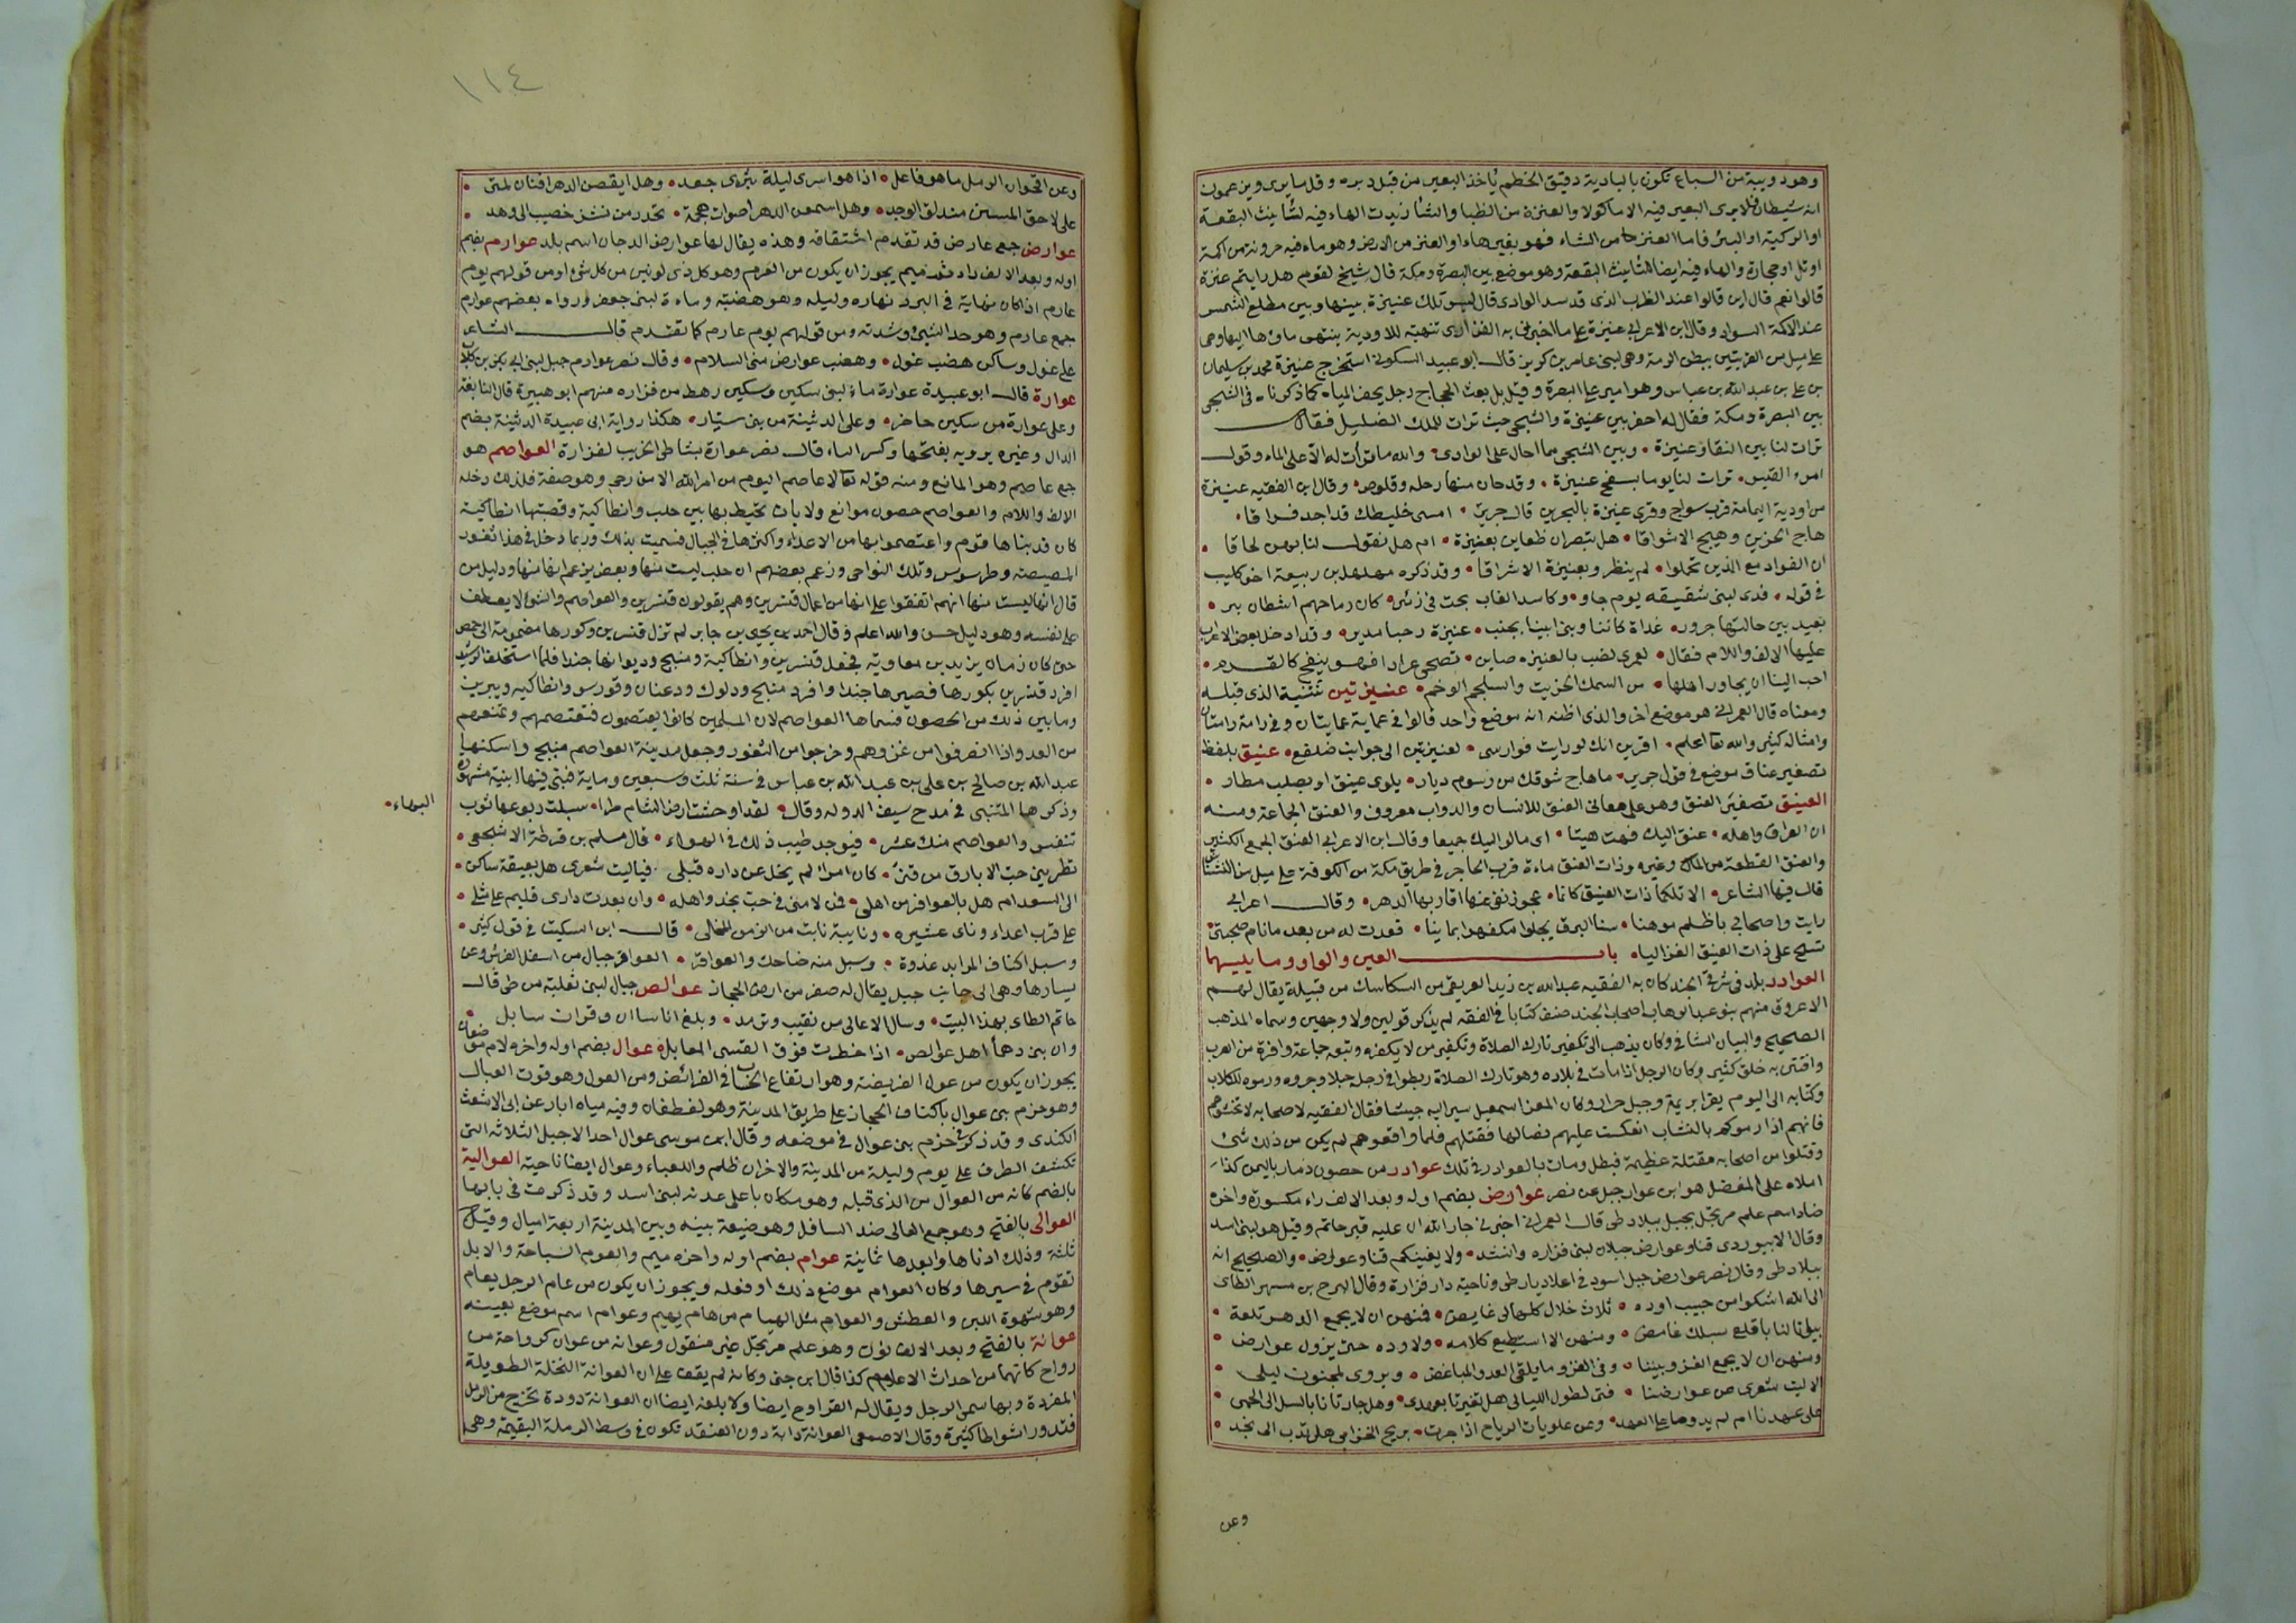 وهو دويبة من السباع تكون بالبادية دقيق الخطم يأخذ البعير من قبل دبره وقل ما يرى ويزعمون
انه شيطان فلا يرى البعير فيه الا ماكولا والعنزة من الظبا والشأ زيدت الهاء فيه لتأنيث البقعة
او الركية او البئر فاما العنز خاص من الشاء فهو بغير هاء او العنز من الارض وهو ماء فيه حزونة من اكمة
اوتل او حجارة والهاء فيه ايضا لتأنيث البقعة وهو موضع بين البصرة ومكة قال شيخ لقوم هل رايتم عنزة
قالوا نعم قال اين قالوا عند الظرب الذي قد سد الوادي قال ليس تلك عنيزة بينها وبين مطلع الشمس
عند الاكمة السواد وقال ابن الاعرابي عنيزة على ما اخبرني به الفزاري تنهية للاودية ينتهى ماؤها اليها وهى
على ميل من القريتين ببطن الرمة وهى لبنى عامر بن كريز قال ابو عبيد السكوني استخرج عنيزة محمد بن سليمان
بن على بن عبد الله بن عباس وهو امير على البصرة وقيل بل بعث الحجاج رجل يحفر المياه كما ذكرناه فى الشجى
بين البصرة ومكة فقال له احفر بين عنيزة والشجى حيث ترات للملك الضليل فقال
ترات لنا بين النقا وعنيزة • وبين الشجى مما احال على الوادى • والله ما ترأت له الا على الماء وقول
امرء القيس • ترات لنا يوما بسفح عنيزة • وقد حان منها رحله وقلوص • وقال ابن الفقيه عنيزة
من اودية اليمامة قرب سواج وقرى عنيزة بالبحرين قال جرير • امسى خليطك قد اجد فراقا •
هاج الحزين وهيج الاشواقا • هل تبصران ظعاين بعنيزة • ام هل نقول لنا بهن لحاقا •
ان الفواد مع الذين تحملوا • لم ينظر وبعنيزة الاشراقا • وقد ذكره مهلهل بن ربيعة اخو كليب
فى قوله • فدى لبنى شقيقه يوم جاو • وكاسد الغاب بحت فى زئير • كان رماحهم اشطان بير •
بعيد بين جالتها جرور • غداة كاننا وبنى ابينا بجنب • عنيزة رحيا مدير • وقد ادخل بعض الاعراب
عليها الالف واللام فقال • لعمرى لضب بالعنيزه صاين • تضحى عرادا فهو ينفح كالقرم •
احب الينا ان يجاور اهلها • من السمك الخريت والسلجم الوخم • عنيزتين تثنية الذى قبله
ومعناه قال العمراني هو موضع اخر والذى اظنه انه موضع واحد قالوا فى عماية عمايتان وفى رامة رامتان
وامثاله كثير والله تعا اعلم • اقرين انك لو رايت فوارسى • لعنيزتين الى جوانب ضلفع • عنيق بلفظ
تصغير عناق موضع فى قول جرير • ما هاج شوقك من رسوم ديار • يلوى عنيق او بصلب مطار •
العنيق تصغير العنق وهو على معانى العنق للانسان والدواب معروف والعنق الجماعة ومنه
ان العراق واهله • عنق اليك فهت هيتا • اى مالوا اليك جميعا وقال ابن الاعرابى العنق الجمع الكثير
والعنق القطعة من المال وغيره وذات العنق ماءة قرب الحاجر فى طريق مكة من الكوفة على ميل من النشناش
قال فيها الشاعر • الا تلكما ذات العنيق كانها • عجوز نفى عنها اقاربها الدهر • وقال اعرابى
رايت واصحابي باظلم موهنا • سنا البرق يجلوا مكفهرا يمانيا • قعدت له من بعد ما نام صحبتى
تسح على ذات العنيق الغزاليا • باب العين والواو وما يليهما
العوادر بلد فى شرقى الجند كان به الفقيه عبد الله بن زيد العريقى من السكاسك من قبيلة يقال لهم
الاعروق منهم بنو عبد الوهاب اصحاب الجند صنف كتابا فى الفقه لم يذكر قولين ولا وجهين وسماه المذهب
الصحيح والبيان الشافى وكان يذهب الى تكفير تارك الصلاة وتكفير من لا يكفره وتبعه جماعة وافرة من العرب
وافتتن به خلق كثير وكان الرجل اذا مات فى بلاده وهو تارك الصلاة ربطوا فى رجله حبلا وجروه ورموه للكلاب
وكتابه الى اليوم يقرا بريمة وجبل حراز وكان المعز اسمعيل سير اليه جيشا فقال الفقيه لاصحابه لا تخشوهم
فانهم اذا رموكم بالنشاب انعكست عليهم نصالها فقتلهم فلما واقعوهم لم يكن من ذلك شئ
وقتلوا من اصحابه مقتلة عظيمة فبطل ومات بالعوادر فى تلك عوادر من حصون ذمار باليمن كذا
املاه على المفضل هو ابن عوار جبل عن نصر عوارض بضم اوله وبعد الالف راء مكسورة واخره
ضاد اسم علم مرتجل بجبل ببلاد طى قال العمرانى اخبرنى جار الله ان عليه قبر حاتم وقيل هو لبنى اسد
وقال الابيوردى قناو عوارض جبلان لبنى فزاره وانشد • ولا يغينكم قنا وعوارض • والصحيح انه
ببلاد طى وقال نصر عوارض جبل اسود فى اعلا ديار طى وناحية دار فزارة وقال البرج بن مسهر الطاى
الى الله اشكوا من حبيب اوده • ثلاث خلال كلها لى غايض • فمنهن ان لا يجمع الدهر تلعة •
بيوتا لنا باقلع سيلك غامض • ومنهن الا استطيع كلامه • ولا وده حتى يزول عوارض •
ومنهن ان لا يجمع الغزو بيننا • وفى الغزو ما يلقى العدو المباغض • ويروى لمجنون ليلى •
الا ليت شعرى عن عوارضنا • فتى لطول الليالى هل تغيرتا بعدى • وهل جارتانا بالسل الى الحمى •
على عهدنا ام لم يدوما على العهد • وعن علويات الرياح اذا جرت • بريح الخزامى هل تدب الى نجد •
وعن
١١٤
وعن اقحوان الرمل ما هو فاعل • اذا هو اسرى ليلة بثرى جعد • وهل ايقصن الدهر افنان لمتى •
على لاحق المبسين مندلق الوجد • وهل اسمعن الدهر اصوات هجمة • تحدر من نشز خصيب الى وهد •
عوارض جمع عارض قد تقدم اشتقاقه وهذه يقال لها عوارض الدجان اسم بلد عوارم بضم
اوله وبعد الالف راء ثم ميم يجوز ان يكون من العرم وهو كل ذى لونين من كل شئ او من قولهم يوم
عارم اذا كان نهاية فى البرد نهاره وليله وهو هضبة وماءة لبنى جعفر ورواه بعضهم عوارم
جمع عارم وهو حد الشئ وشدته ومن قولهم يوم عارم كما تقدم قال الشاعر
على غول وساكن هضب غول • وهضب عوارض منى السلام • وقال نصر عوارم جبل لبنى ابى بكر بن كلاب
عوارة قال ابو عبيدة عوارة ماء لبنى سكين وسكين رهط من فزاره منهم ابو هبيرة قال النابغة
وعلى عوارة من سكين حاضر • وعلى الدثينة من بنى سيار • هكذا رواية ابى عبيدة الدثينة بضم
الدال وغيره يرويه بفتحها وكسر الثاء قال نصر عوارة بشاطى الجريب لفزارة العواصم هو
جمع عاصم وهو المانع ومنه قوله تعا لا عاصم اليوم من امر الله الا من رحم وهو صفة فلذلك دخله
الالف واللام والعواصم حصون موانع ولايات تحيط بها بين حلب وانطاكية وقصبتها انطاكية
كان قد بناها قوم واعتصموا بها من الاعداء واكثرها فى الجبال فسميت بذلك وربما دخل فى هذا ثغور
المصيصة وطرسوس وتلك النواحى وزعم بعضهم ان حلب ليست منها وبعضهم يزعم انها منها ودليل من
قال انها ليست منها انهم اتفقوا على انها من اعمال قنسرين وهم يقولون قنسرين والعواصم والشئ لا يعطف
على نفسه وهو دليل حسن والله اعلم وقال احمد بن يحيى بن جابر لم تزل قنسرين وكورها مضمومة الى حمص
حتى كان زمان يزيد بن معاويه فجعل قنسرين وانطاكية ومنبج وذواتها جندا فلما استخلف الرشيد
افرد قنسرين بكورها فصيرها جندا وافرد منبج ودلوك ورعنان وقورس وانطاكيه ويبرين
وما بين ذلك من الحصون فسماها العواصم لان المسلمين كانوا يعتصمون فتعتصمهم وتمنعهم
من العدو اذا انصرفوا من غزوهم وخرجوا من الثغور وجعل مدينة العواصم منبج واسكنها
عبد الله بن صالح بن على بن عبد الله بن عباس فى سنة ثلث وسبعين وماية فبنى فيها ابنية مشهورة
وذكرها المتنبى فى مدح سيف الدوله وقال • لقد اوحشت ارض الشام طرا • سبلت ربوعها ثوب
البهاء •
تنفس والعواصم منك عشر • فيوجد طيب ذلك فى الهواء • قال مسلم بن قرطة الاشجعى •
تطربنى حب الابارق من قنى • كان امرأ لم يخل عن داره قبلى • فياليت شعرى هل بعيقة ساكن •
الى السعد ام هل بالعوافر من اهلى • فمن لامنى فى حب نجد واهله • وان بعدت دارى فليم على مثلى •
على قرب اعداء وناى عشيره • ونايبة نابت من الزمن المحالى • قال ابن السكيت فى قول كثير •
وسيل اكناف المرابد غدوة • وسيل منه ضاحك والعواقر • العواقر جبال من اسفل الفرش وعن
يسارها وهى الى جانب جبل يقال له صفر من ارض الحجاز عوالص جبال لبنى ثعلبة من طى قال
حاتم الطاى بهذا البيت • وسال الاعالى من نقيب وثرمد • وبلغ اناسا ان وقران سايل
وان بنى دهما اهل عوالص • اذا خطرت فوق القسى المعابل • عوال بضم اوله واخره لام
يجوز ان يكون من عول الفريضة وهو ارتفاع الحساب فى الفرائض ومن العول وهو قوت العيال
وهو حزم بنى عوال باكناف الحجاز على طريق المدينة وهو لغطفان وفيه مياه ابار عن ابى الاشعث
الكندى وقد ذكر فى حزم بنى عوال فى موضعه وقال ابن موسى عوال احد الاجبل الثلاثه التى
تكتنف الطرف على يوم وليلة من المدينة والاخران ظلم واللعباء وعوال ايضا ناحية العوالية
بالضم كانه من العوال من الذى قبله وهو مكان باعلى عدنه لبنى اسد وقد ذكرت فى بابها
العوالى بالفتح وهو جمع العالى ضد السافل وهو ضيعة بينه وبين المدينة اربعة اميال وقيل
ثلثة وذلك ادناها وابعدها ثمانية عوام بضم اوله واخره ميم والعوم السباحة والابل
تعوم فى سيرها وكان العوام موضع ذلك او فعله ويجوز ان يكون من عام الرجل يعام
وهو شهوة اللبن والعطش والعوام مثل الهيام من هام يهيم وعوام اسم موضع بعينه
عوانة بالفتح وبعد الالف نون وهو علم مرتجل غير منقول وعوانه من عوان كرواحة من
رواح كانهما من احداث الاعلام كذا قال ابن جنى وكانه لم يقف على ان العوانة النخلة الطويلة
المفردة وبها سمى الرجل ويقال له القرواح ايضا ولا بلغه ايضا ان العوانة دودة تخرج من الرمل
فتدور اشواطا كثيرة وقال الاصمعى العوانة دابة دون القنفذ تكون فى وسط الرملة اليتيمة وهى